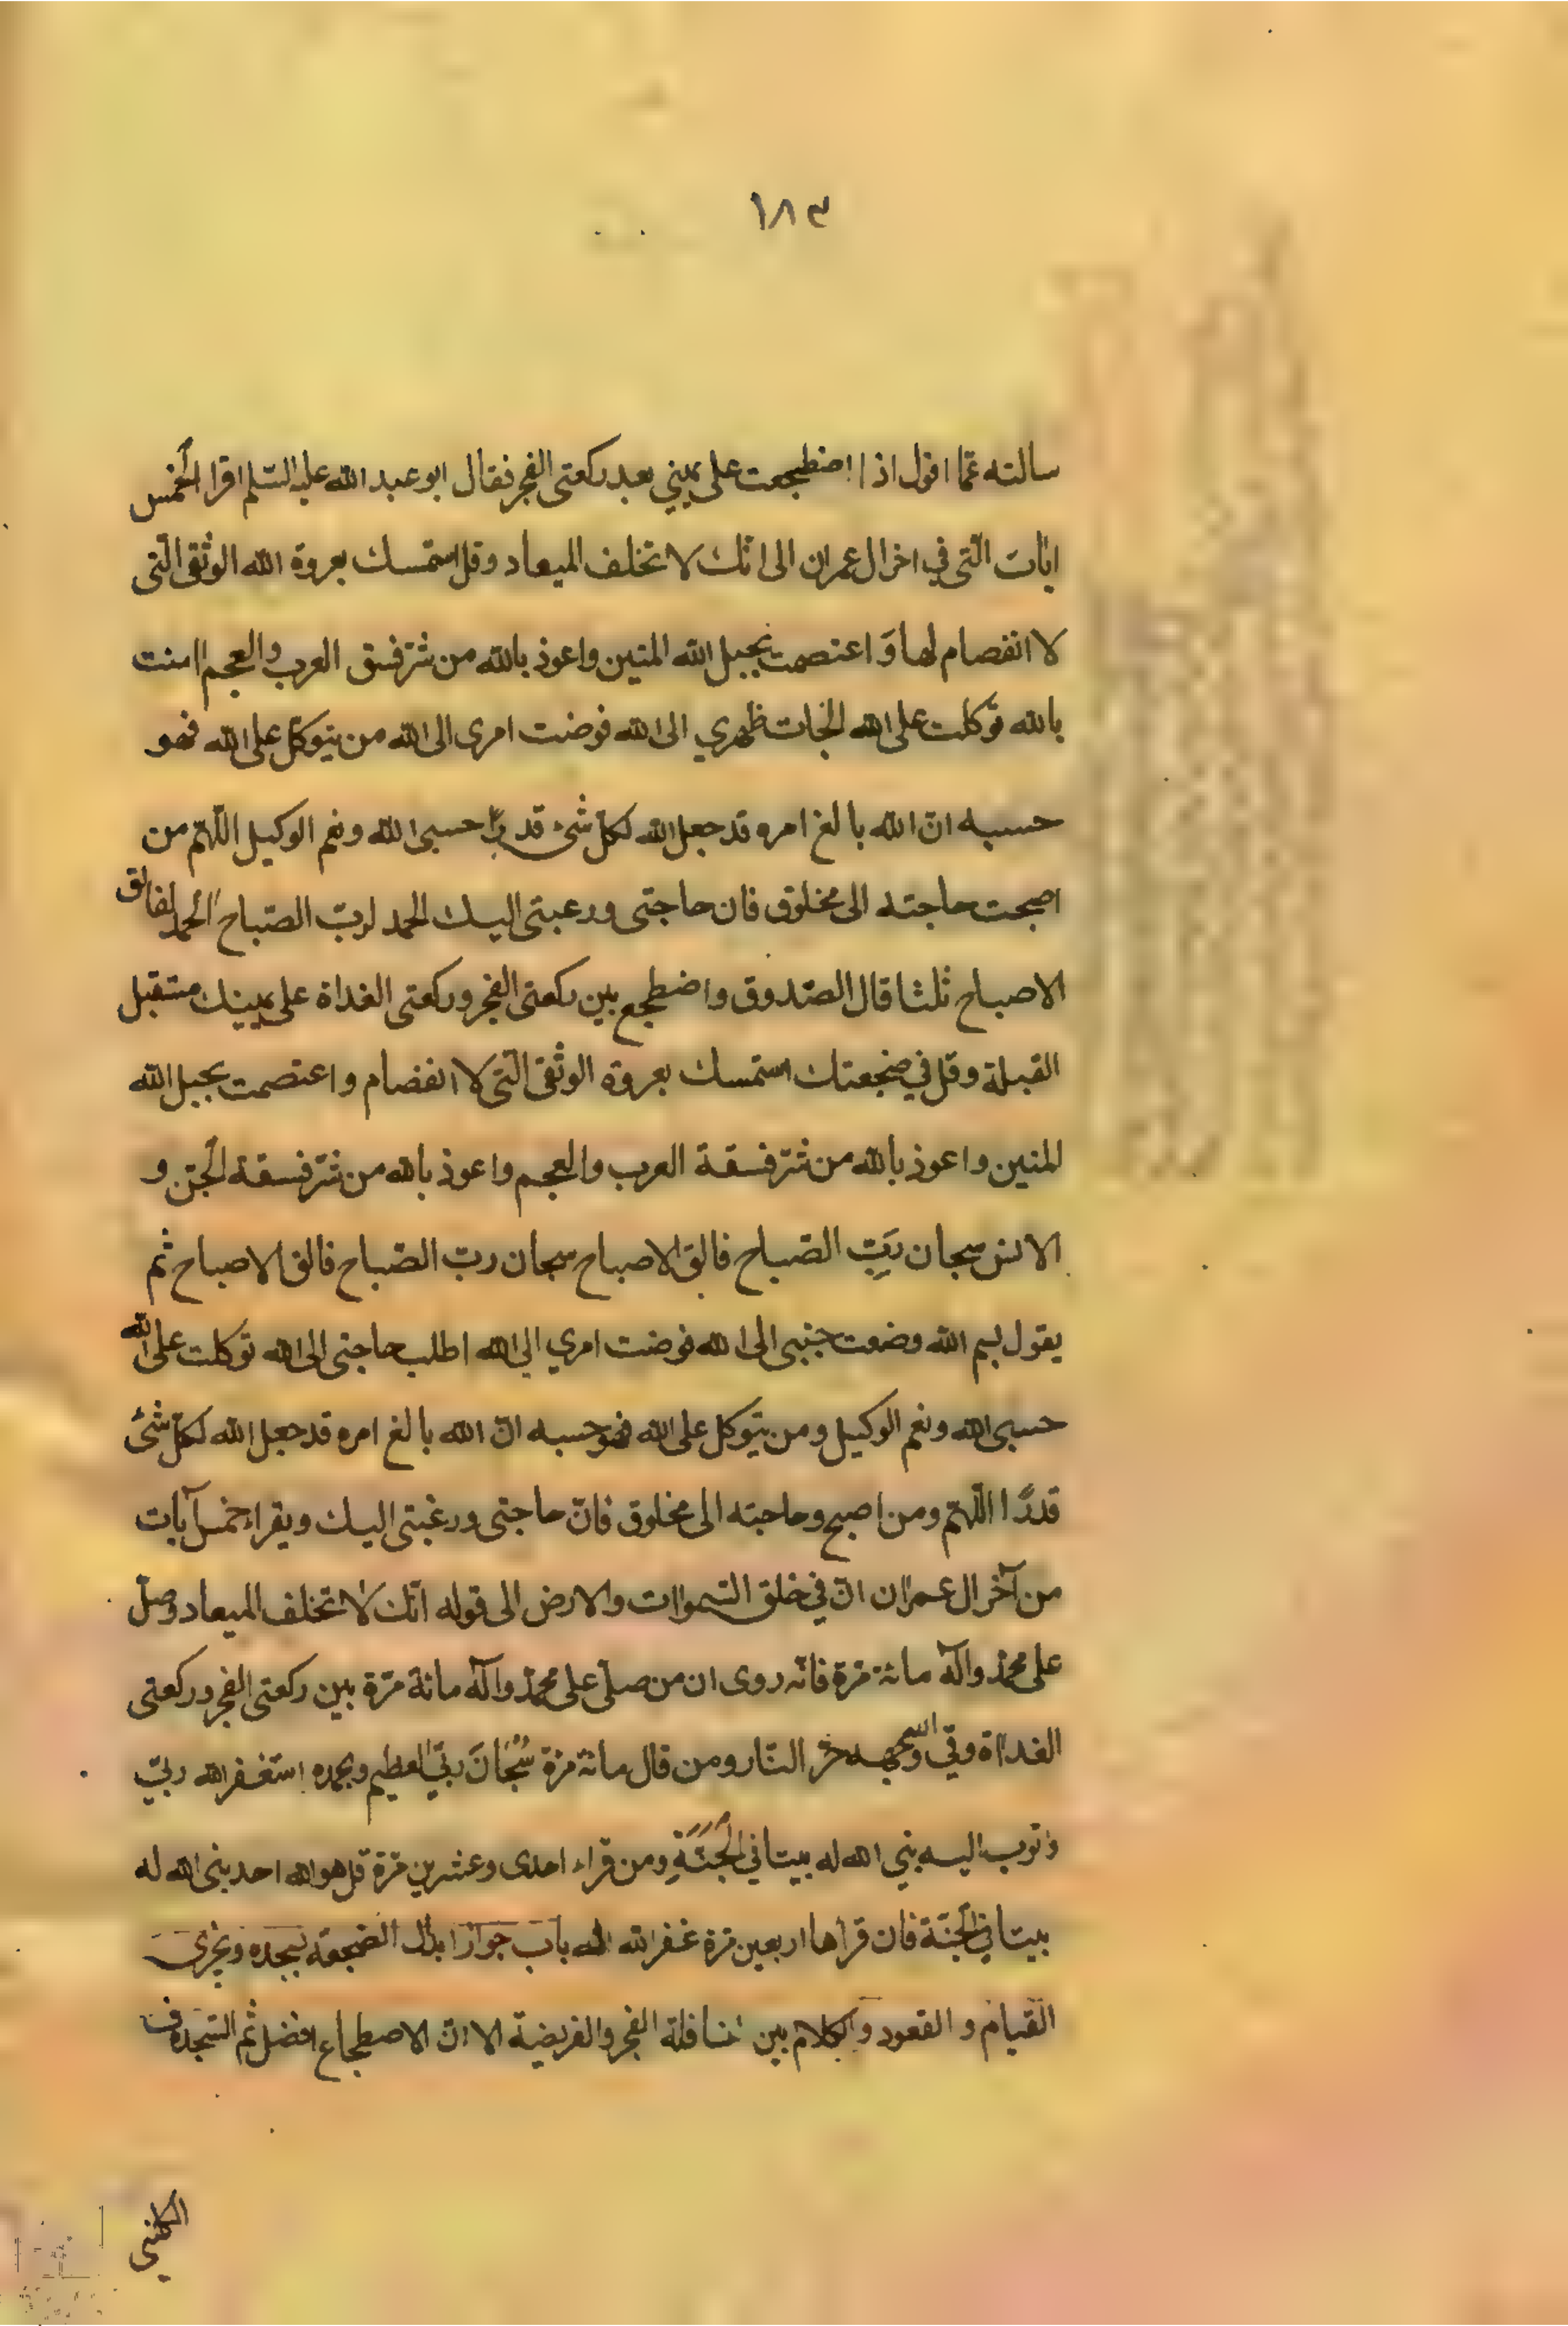 ١٨٣
سالته عمّا اقول اذا اضطجعت على يميني بعد ركعتى الفجر فقال ابو عبد الله عليه السّلم اقرا الخمس
ايات الّتى في اخر ال عمران الى انّك لا تخلف الميعاد وقل استمسك بعروة الله الوثقى الّتى
لا انفصام لها وَ اعتصمت بحبل الله المتين واعوذ بالله من شرّ فسق العرب والعجم امنت
بالله توكّلت على الله الجات ظهري الى الله فوضت امرى الى الله من يتوكّل على الله فهو
حسبه انّ الله بالغ امره قد جعل الله لكلّ شئ قدرًا حسبى الله ونعم الوكيل اللّهمّ من
اصبحت حاجته الى مخلوق فان حاجتى ورعبتى اليك الحمد لربّ الصّباح الحمد لفالق
الاصباح ثلثا قال الصّدوق واضطجع بين ركعتى الفجر وركعتى الغداة على يمينك مستقبل
القبلة وقل في ضجعتك استمسك بعروة الوثقى الّتى لا انفصام واعتصمت بحبل الله
المتين واعوذ بالله من شرّ فسقة العرب والعجم واعوذ بالله من شرّ فسقة الجنّ و
الانس سبحان رَبِّ الصّباح فالق الاصباح سبحان ربّ الصّباح فالق الاصباح ثم
يقول بسم الله وضعت جنبى الى الله فوضت امري الى الله اطلب حاجتى الى الله توكلت على الله
حسبى الله ونعم الوكيل ومن يتوكل على الله فهو حسبه انّ الله بالغ امره قد جعل الله لكلّ شئ
قدرًا اللّهمّ ومن اصبح وحاجته الى مخلوق فانّ حاجتى ورغبتى اليك ويقراء خمس آيات
من آخر ال عمران انّ في خلق السّموات والارض الى قوله انّك لا تخلف الميعاد وصلّ
على محمّد وآله مائة مرّة فانّه روى ان من صلّى على محمّد وآله مائة مرّة بين ركعتى الفجر وركعتى
الغداة وقي الله وجهه حرّ النّار ومن قال مائة مرّة سُبْحَانَ ربّي العظيم وبحمده استغفر الله ربّي
واتوب اليه بني الله له بيتا في الجَنَّةِ ومن قراء احدى وعشرين مرّة قل هو الله احد بنى الله له
بيتا في الجنّة فان قرأها اربعين مرة غفر الله له باب جواز ابدال الضجعة بسجده ويجزى
القيام و القعود والكلام بين نافلة الفجر والفريضة الا انّ الاضطجاع افضل ثم السّجدة
الكلينى